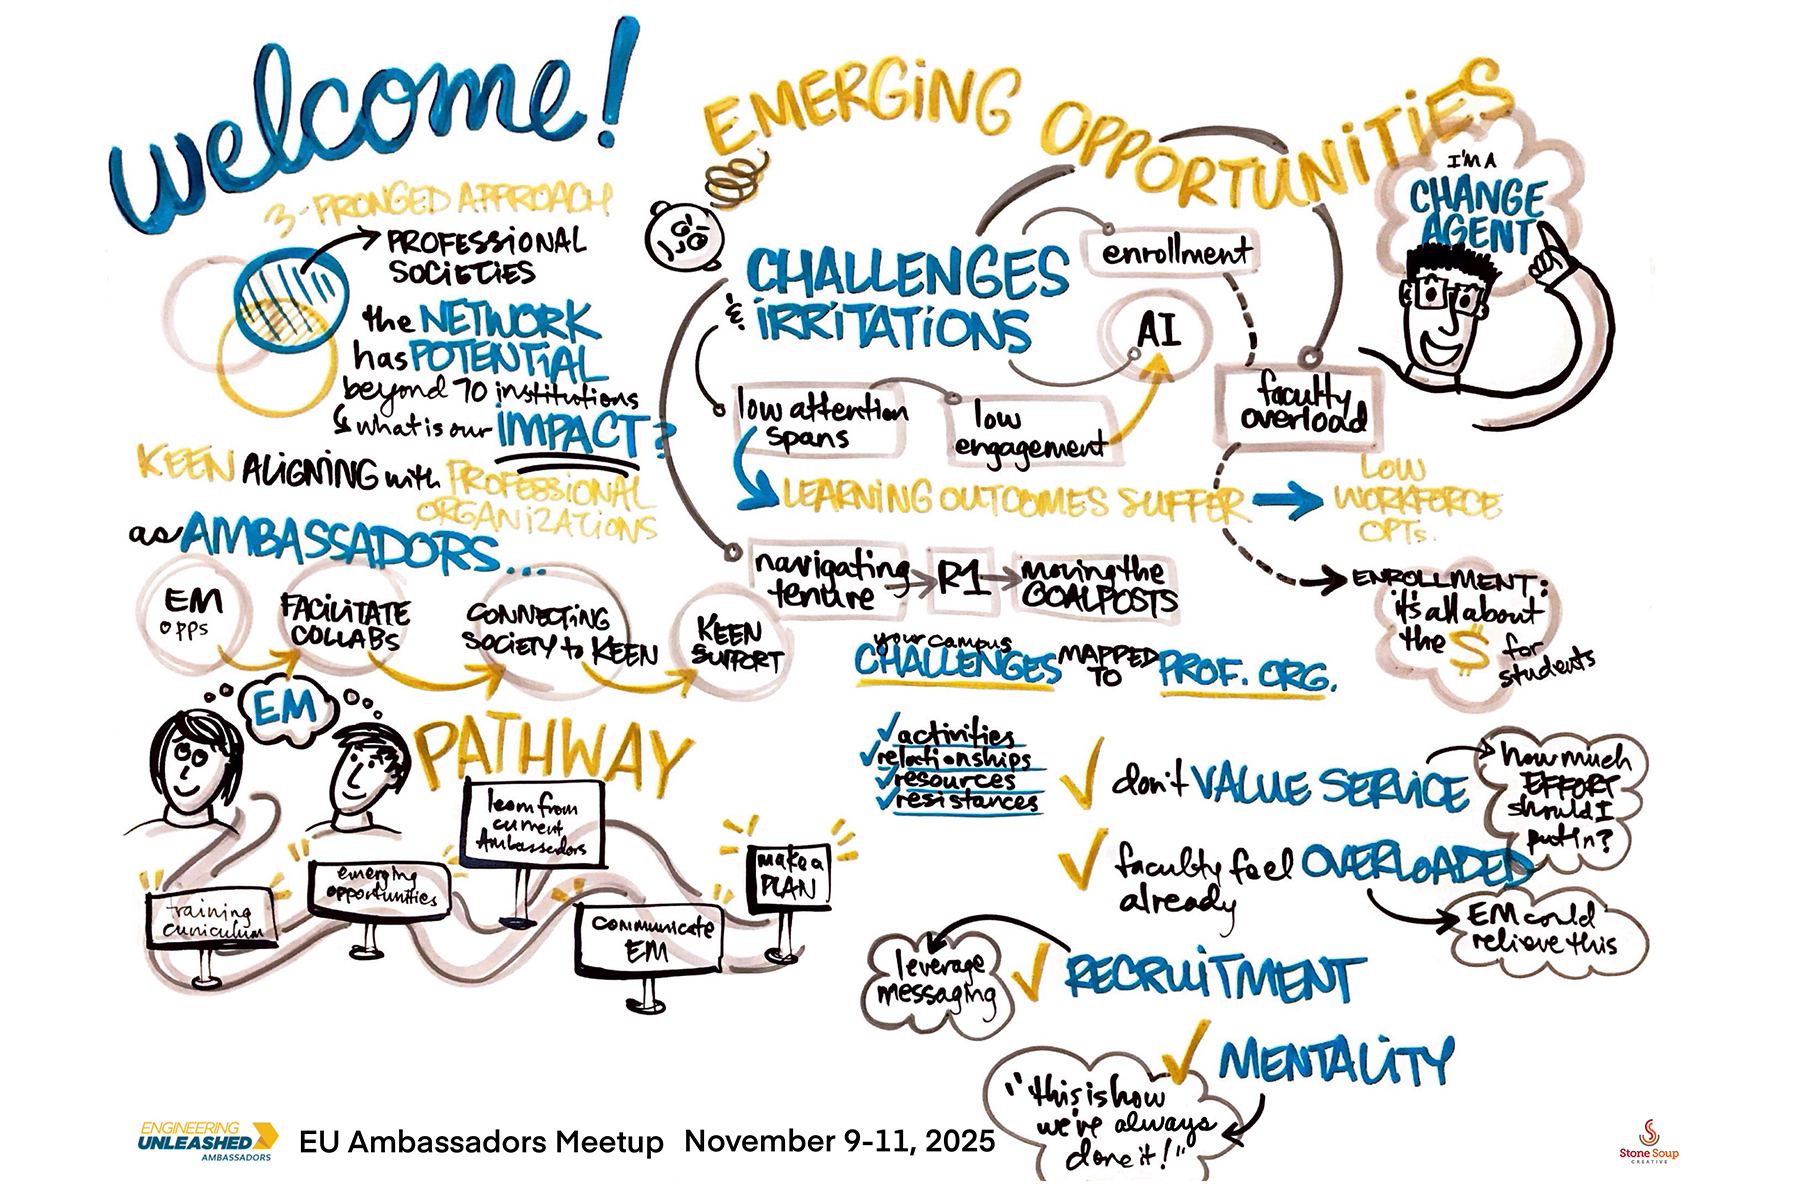 welcome!
3-PRONGED APPROACH
PROFESSIONAL
SOCIETIES
the NETWORK
has POTENTIAL
beyond 70 institutions
& what is our IMPACT?
KEEN ALIGNING with PROFESSIONAL
ORGANIZATIONS
as AMBASSADORS...
EM
OPPS
FACILITATE
COLLABS
CONNECTING
SOCIETY to KEEN
KEEN
SUPPORT
EM
PATHWAY
training
curriculum
emerging
opportunities
learn from
current
Ambassadors
COMMUNICATE
EM
make a
PLAN
EMERGING OPPORTUNITIES
I'M A
CHANGE
AGENT
CHALLENGES
& IRRITATIONS
enrollment
AI
low attention
spans
low
engagement
faculty
overload
LEARNING OUTCOMES SUFFER
LOW
WORKFORCE
OPTs.
navigating
tenure
R1
moving the
GOALPOSTS
ENROLLMENT:
it's all about
the $ for
students
your campus
CHALLENGES MAPPED
TO PROF. ORG.
activities
relationships
resources
resistances
don't VALUE SERVICE
how much
EFFORT
should I
put in?
faculty feel OVERLOADED
already
EM could
relieve this
RECRUITMENT
leverage
messaging
MENTALITY
"this is how
we've always
done it!"
ENGINEERING
UNLEASHED
AMBASSADORS
EU Ambassadors Meetup November 9-11, 2025
Stone Soup
CREATIVE